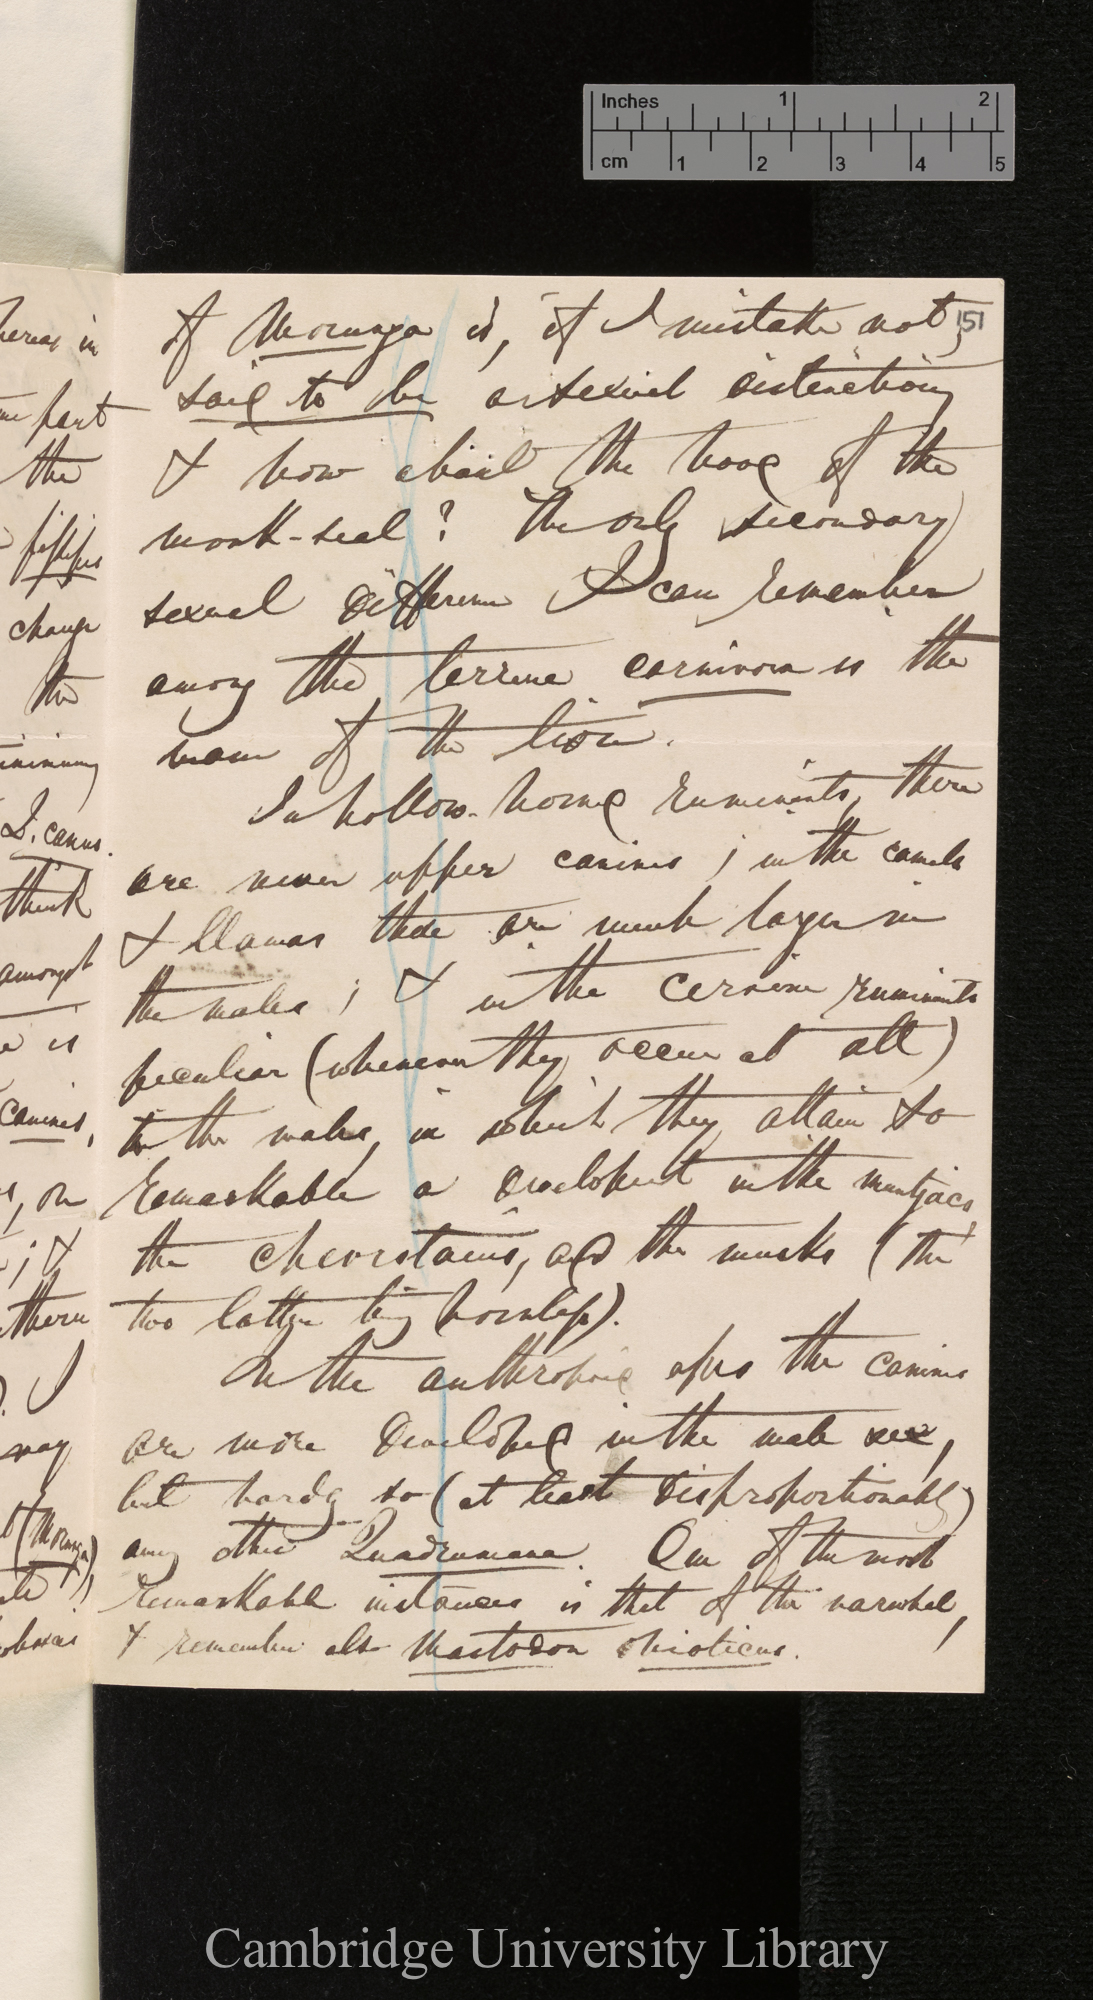 Inches 1 2
cm 1 2 3 4 5
151
of Morunga is, if I mistake not,
said to be a sexual distinction;
& how about the hood of the
monk-seal? The only secondary
sexual difference I can remember
among the terrene carnivora is the
mane of the lion.
In hollow-horned ruminants, there
are never upper canines; in the camels
& llamas these are much larger in
the males; & in the cervine ruminants
peculiar (whenever they occur at all)
to the males, in which they attain so
remarkable a development in the muntjacs,
the chevrotains, and the musks (the
two latter being hornless).
In the anthropoid apes the canines
are more developed in the male sex,
but hardly so (at least disproportionably)
among other Quadrumana. One of the most
remarkable instances is that of the narwhal,
& remember also Mastodon ohioticus.
whereas in
part
the
fissipes
change
the
D. canus.
think
amongst
is
canines,
, or
; &
there
). I
may
(Morunga),
Cambridge University Library